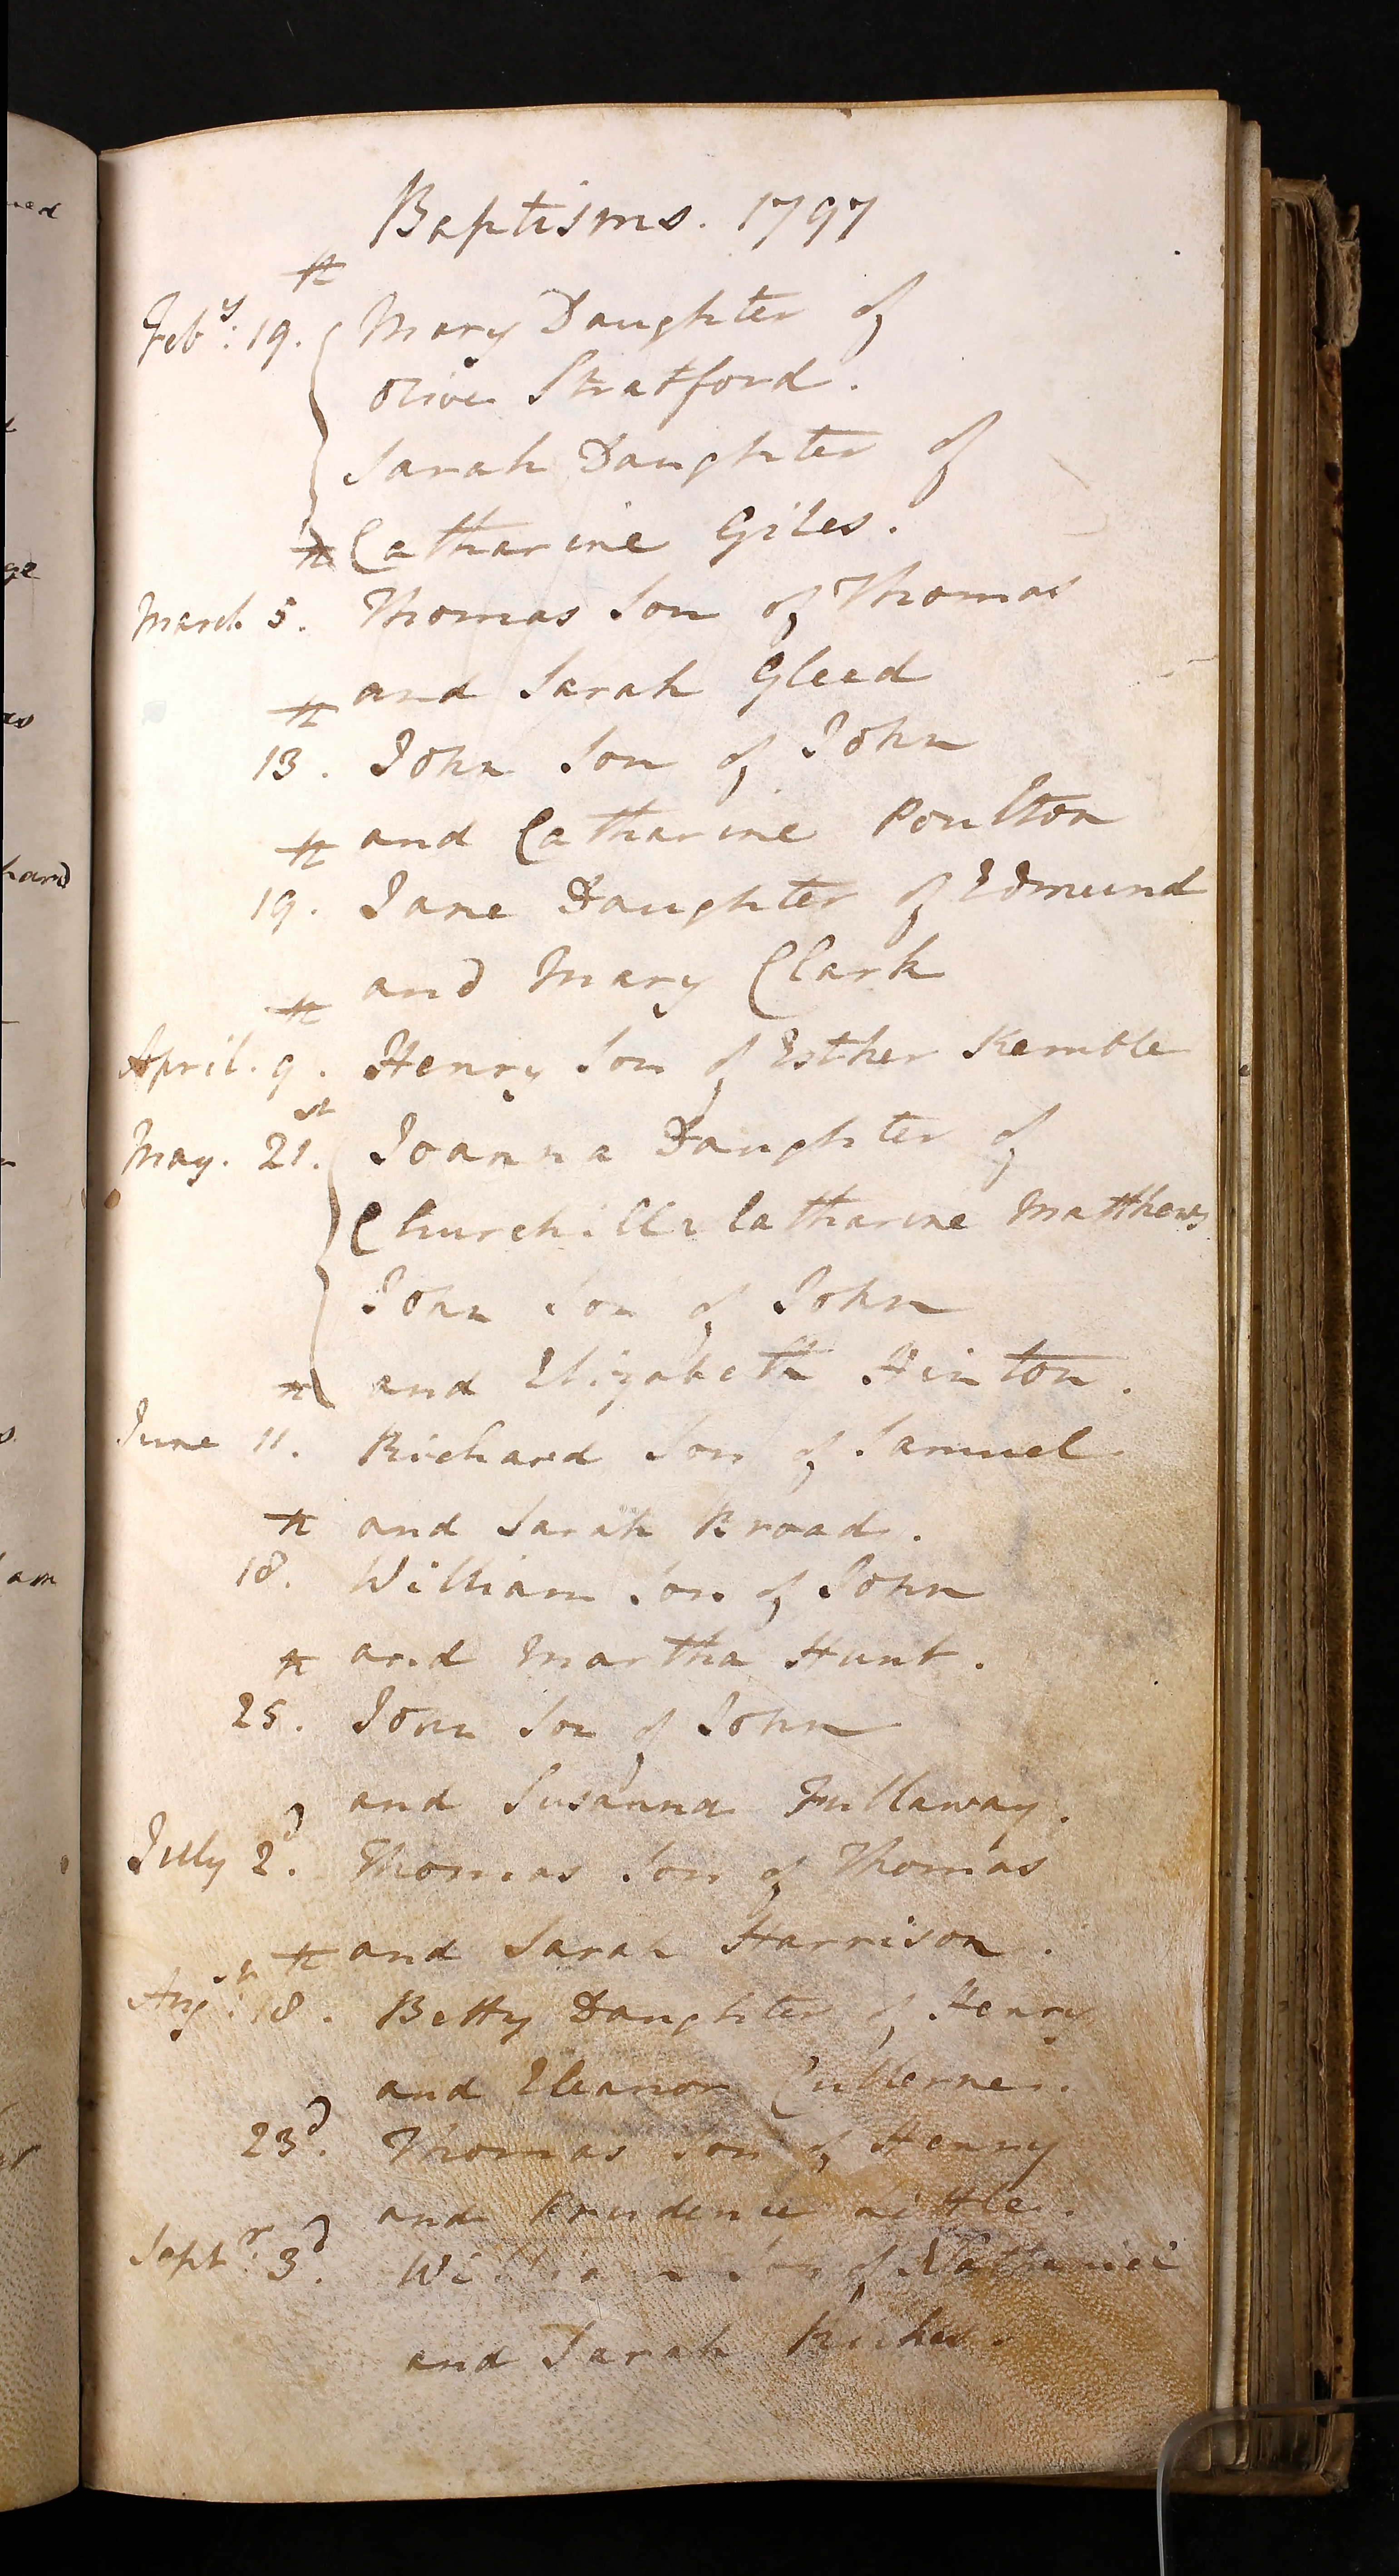 Baptisms. 1797
th
Feby: 19. Mary Daughter of
Olive Stratford.
Sarah Daughter of
th Catharine Giles.
March 5. Thomas Son of Thomas
th and Sarah Gleed
13. John Son of John
th and Catharine Poulton
19. Jane Daughter of Edmund
th and Mary Clark
April. 9. Henry Son of Esther Kemble
May. 21.st Joanna Daughter of
Churchill & Catharine Matthews
John Son of John
th and Elizabeth Hinton.
June 11. Richard Son of Samuel
th and Sarah Broad.
18. William Son of John
th and Martha Hunt.
25. John Son of John
and Susanna Fullaway.
July 2d. Thomas Son of Thomas
th and Sarah Harrison.
Augst: 18. Betty Daughter of Henry
and Eleanor
23d. Thomas Son of Henry
and Prudence Little.
Septr: 3d. William Son of Nathaniel
and Sarah